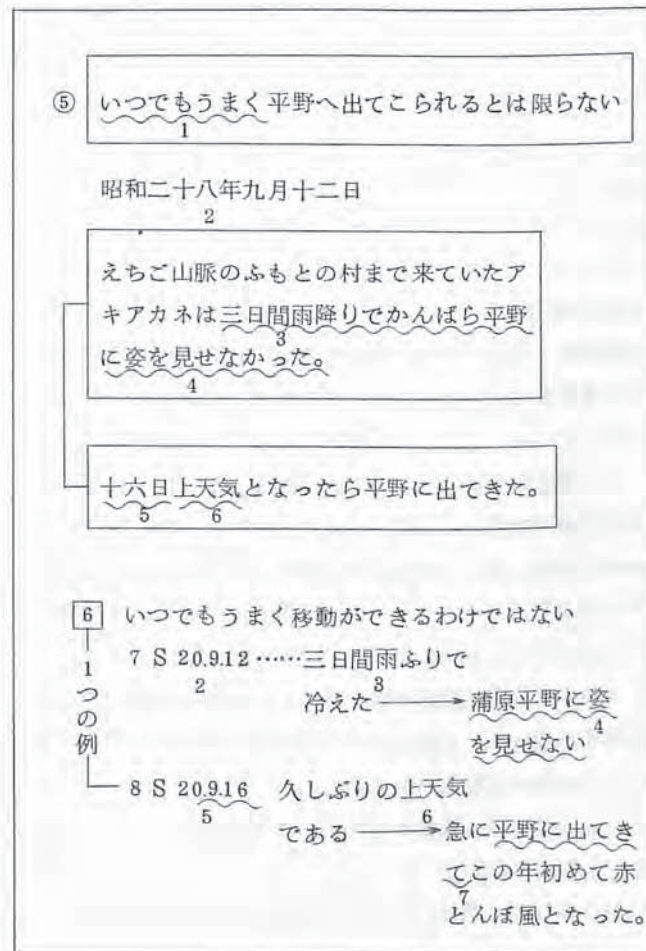 ⑤ いつでもうまく平野へ出てこられるとは限らない
1
昭和二十八年九月十二日
2
えちご山脈のふもとの村まで来ていたア
キアカネは三日間雨降りでかんばら平野
3
に姿を見せなかった。
4
十六日上天気となったら平野に出てきた。
5 6
6 いつでもうまく移動ができるわけではない
1つの例
7 S 20.9.12……三日間雨ふりで
2 3
冷えた→蒲原平野に姿
4
を見せない
8 S 20.9.16 久しぶりの上天気
5 6
である→急に平野に出てき
てこの年初めて赤
7
とんぼ風となった。